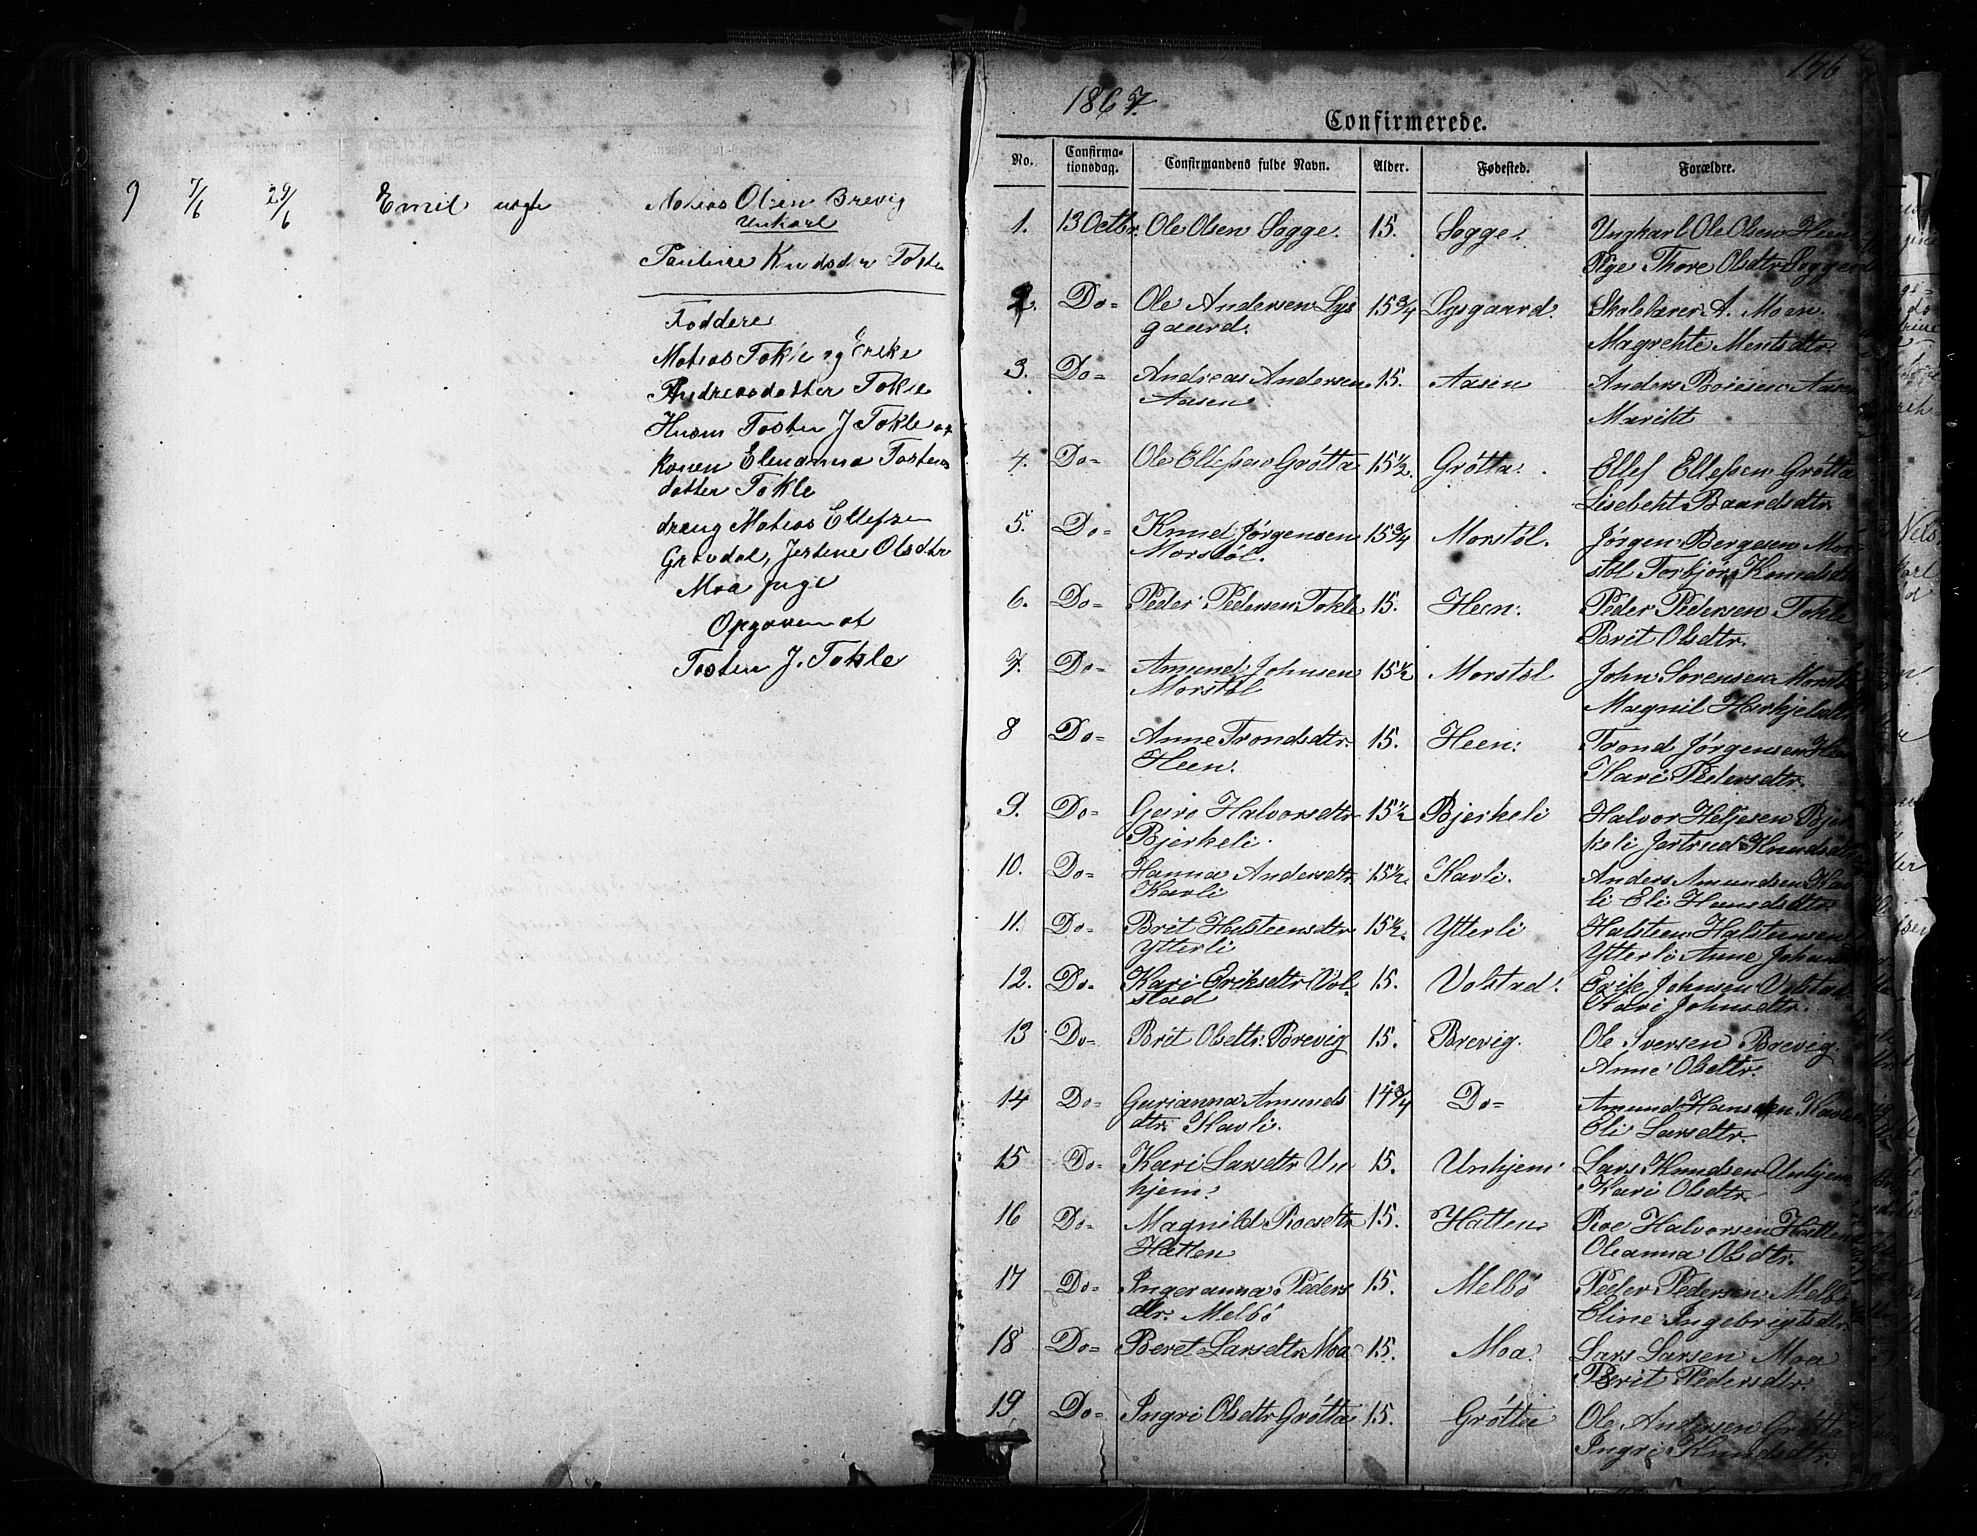 9 7/6 29/6 Emil uægte Matias Olsen Brevig
Unkarl
Pauline Knudsdr Tokle
Foddere
Matias Tokle og Erike
Andreasdatter Tokle
Husm Tosten J Tokle og
konen Elenanna Tostens
datter Tokle
dreng Matias Ellefsen
Grøvdal, Jertine Olsdtr
Moa pige
Opgaven af
Tosten J. Tokle
146
1867.
Confirmerede.
No. Confirma-tionsdag. Confirmandens fulde Navn. Alder. Fødested. Forældre.
1. 13 Octbr. Ole Olsen Sogge. 15. Sogge. Ungkarl Ole Olsen Heen
Pige Thore Olsdtr Sogge
2. Do= Ole Andersen Lys 15 3/4 Lysgaard. Skolelærer A. Moen.
gaard. Magrehte Mentsdtr.
3. Do= Andreas Andersen 15. Aasen Anders Boiesen Aasen
Aasen Mariht
4. Do= Ole Ellefsen Grötta 15 1/2. Grötta. Ellef Ellefsen Grötta
Lisebeht Baardsdtr
5. Do= Knud Jørgensen 15 3/4 Morstöl. Jørgen Bergesen Mor
Morstöl. stöl Torbjör Knudsdtr
6. Do= Peder Pedersen Tokle 15. Heen. Peder Pedersen Tokle
Brit Olsdtr.
7. Do= Amund Johnsen 15 1/2 Morstöl John Sörensen Morstöl
Morstöl Magnil Herkjelsdtr
8 Do= Anne Trondsdtr. 15. Heen. Trond Jørgensen Heen
Heen. Kari Pedersdtr.
9. Do= Guro Halvorsdtr 15 1/2 Bjerkeli Halvor Heljesen Bjer
Bjerkeli. keli Jertrud Knudsdtr
10. Do= Hanna Andersdtr. 15 1/2. Kavli. Anders Amundsen Kav
Kavli li Eli Hansdtr.
11. Do= Brit Halsteensdtr 15 1/2. Ytterli Halsteen Halsteensen
Ytterli Ytterli Anne Johans
12. Do= Kari Eriksdtr Vol- 15. Volstad. Erik Johnsen Volstad
stad Kari Johnsdtr.
13 Do= Brit Olsdtr. Brevig 15. Brevig. Ole Iversen Brevig
Anne Olsdtr.
14 Do= Gurianna Amunds 14 3/4 Do= Amund Hansen Kavli
dtr. Kavli. Eli Larsdtr.
15 Do= Kari Larsdtr Un 15. Unhjem Lars Knudsen Unhjem
hjem. Kari Olsdtr.
16 Do= Magnild Roesdtr 15. Hatten Roe Halvorsen Hatten
Hatten Oleanna Olsdtr.
17 Do= Ingeranna Peders 15. Melbö Peder Pedersen Melbö
dtr. Melbö Eline Ingebrigtsdtr
18 Do= Beret Larsdtr Moa 15. Moa. Lars Larsen Moa
Berit Pedersdtr.
19 Do= Ingri Olsdtr Grötta 15. Grötta Ole Andersen Grötta
Ingri Knudsdtr.